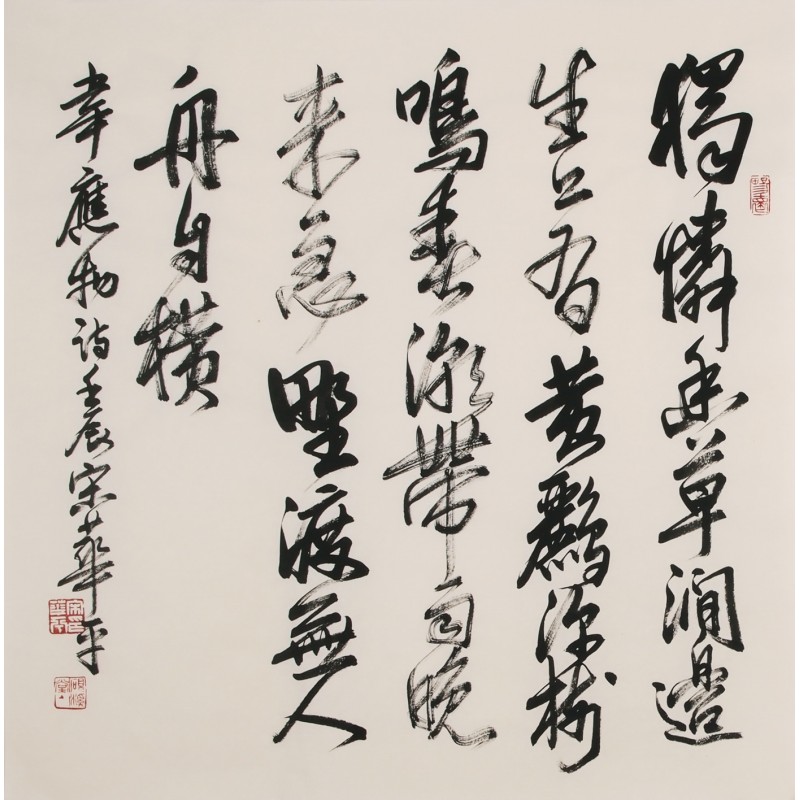 獨憐幽草澗邊
生上有黄鸝深樹
鳴春潮帶雨晚
来急野渡無人
舟自横
韋應物诗壬辰宋華平